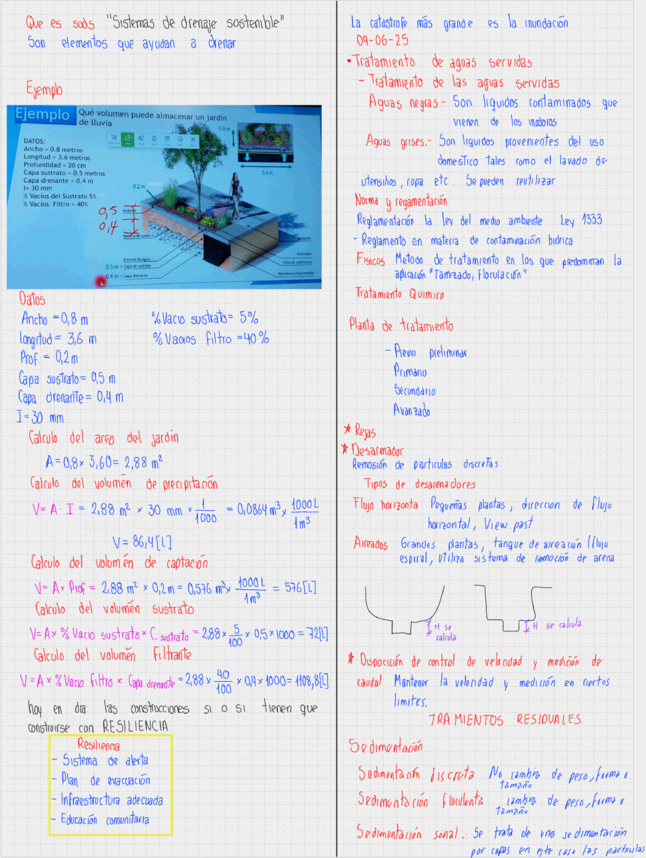 Que es suds "Sistemas de drenaje sostenible"
Son elementos que ayudan a drenar
Ejemplo
Ejemplo Qué volumen puede almacenar un jardín
de lluvia
DATOS:
Ancho = 0.8 metros
Longitud = 3.6 metros
Profundidad = 20 cm
Capa sustrato = 0.5 metros
Capa drenante = 0.4 m
I= 30 mm
% Vacíos del Sustrato 5%
% Vacíos Filtro = 40%
0.2 m
0,5
0,4
Datos
Ancho = 0,8 m % Vacio sustrato = 5%
longitud = 3,6 m % Vacios filtro = 40%
Prof. = 0,2 m
Capa sustrato = 0,5 m
Capa drenante = 0,4 m
I = 30 mm
Calculo del area del jardín
A = 0,8 x 3,60 = 2,88 m²
Calculo del volumen de precipitación
V = A · I = 2,88 m² x 30 mm x 1/1000 = 0,0864 m³ x 1000 L/1m³
V = 86,4 [L]
Calculo del volumen de captación
V = A x Prof = 2,88 m² x 0,2 m = 0,576 m³ x 1000 L/1m³ = 576 [L]
Calculo del volumen sustrato
V = A x % Vacio sustrato x C. sustrato = 2,88 x 5/100 x 0,5 x 1000 = 72 [L]
Calculo del volumen filtrante
V = A x % Vacio filtro x Capa drenante = 2,88 x 40/100 x 0,4 x 1000 = 1108,8 [L]
hoy en dia las construcciones si o si tienen que
construirse con RESILIENCIA
Resiliencia
- Sistema de alerta
- Plan de evacuación
- Infraestructura adecuada
- Educación comunitaria
La catástrofe más grande es la inundación
09-06-25
• Tratamiento de aguas servidas
- Tratamiento de las aguas servidas
Aguas negras.- Son líquidos contaminados que
vienen de los inodoros
Aguas grises.- Son líquidos provenientes del uso
domestico tales como el lavado de
utensilios, ropa etc. Se pueden reutilizar
Norma y regamentación
Reglamentación la ley del medio ambiente Ley 1333
- Reglamento en materia de contaminación hidrica
Fisicos Metodo de tratamiento en los que predominan la
aplicación "Tamizado, Floculación"
Tratamiento Quimico
Planta de tratamiento
- Previo preliminar
Primario
Secundario
Avanzado
* Rejas
* Desarenador
Remosión de particulas discretas
Tipos de desarenadores
Flujo horizonta Pequeñas plantas, direccion de flujo
horizontal, View past
Aireados Grandes plantas, tanque de aireación (flujo
espiral, utiliza sistema de remoción de arena
H se
calcula
H se calcula
* Disposición de control de velocidad y medición de
caudal Mantener la velocidad y medición en ciertos
limites.
TRAMIENTOS RESIDUALES
Sedimentación
Sedimentación discreta No cambia de peso, forma o
tamaño
Sedimentación floculenta cambia de peso, forma o
tamaño
Sedimentación sonal.- Se trata de una sedimentación
por capas en este caso las particulas